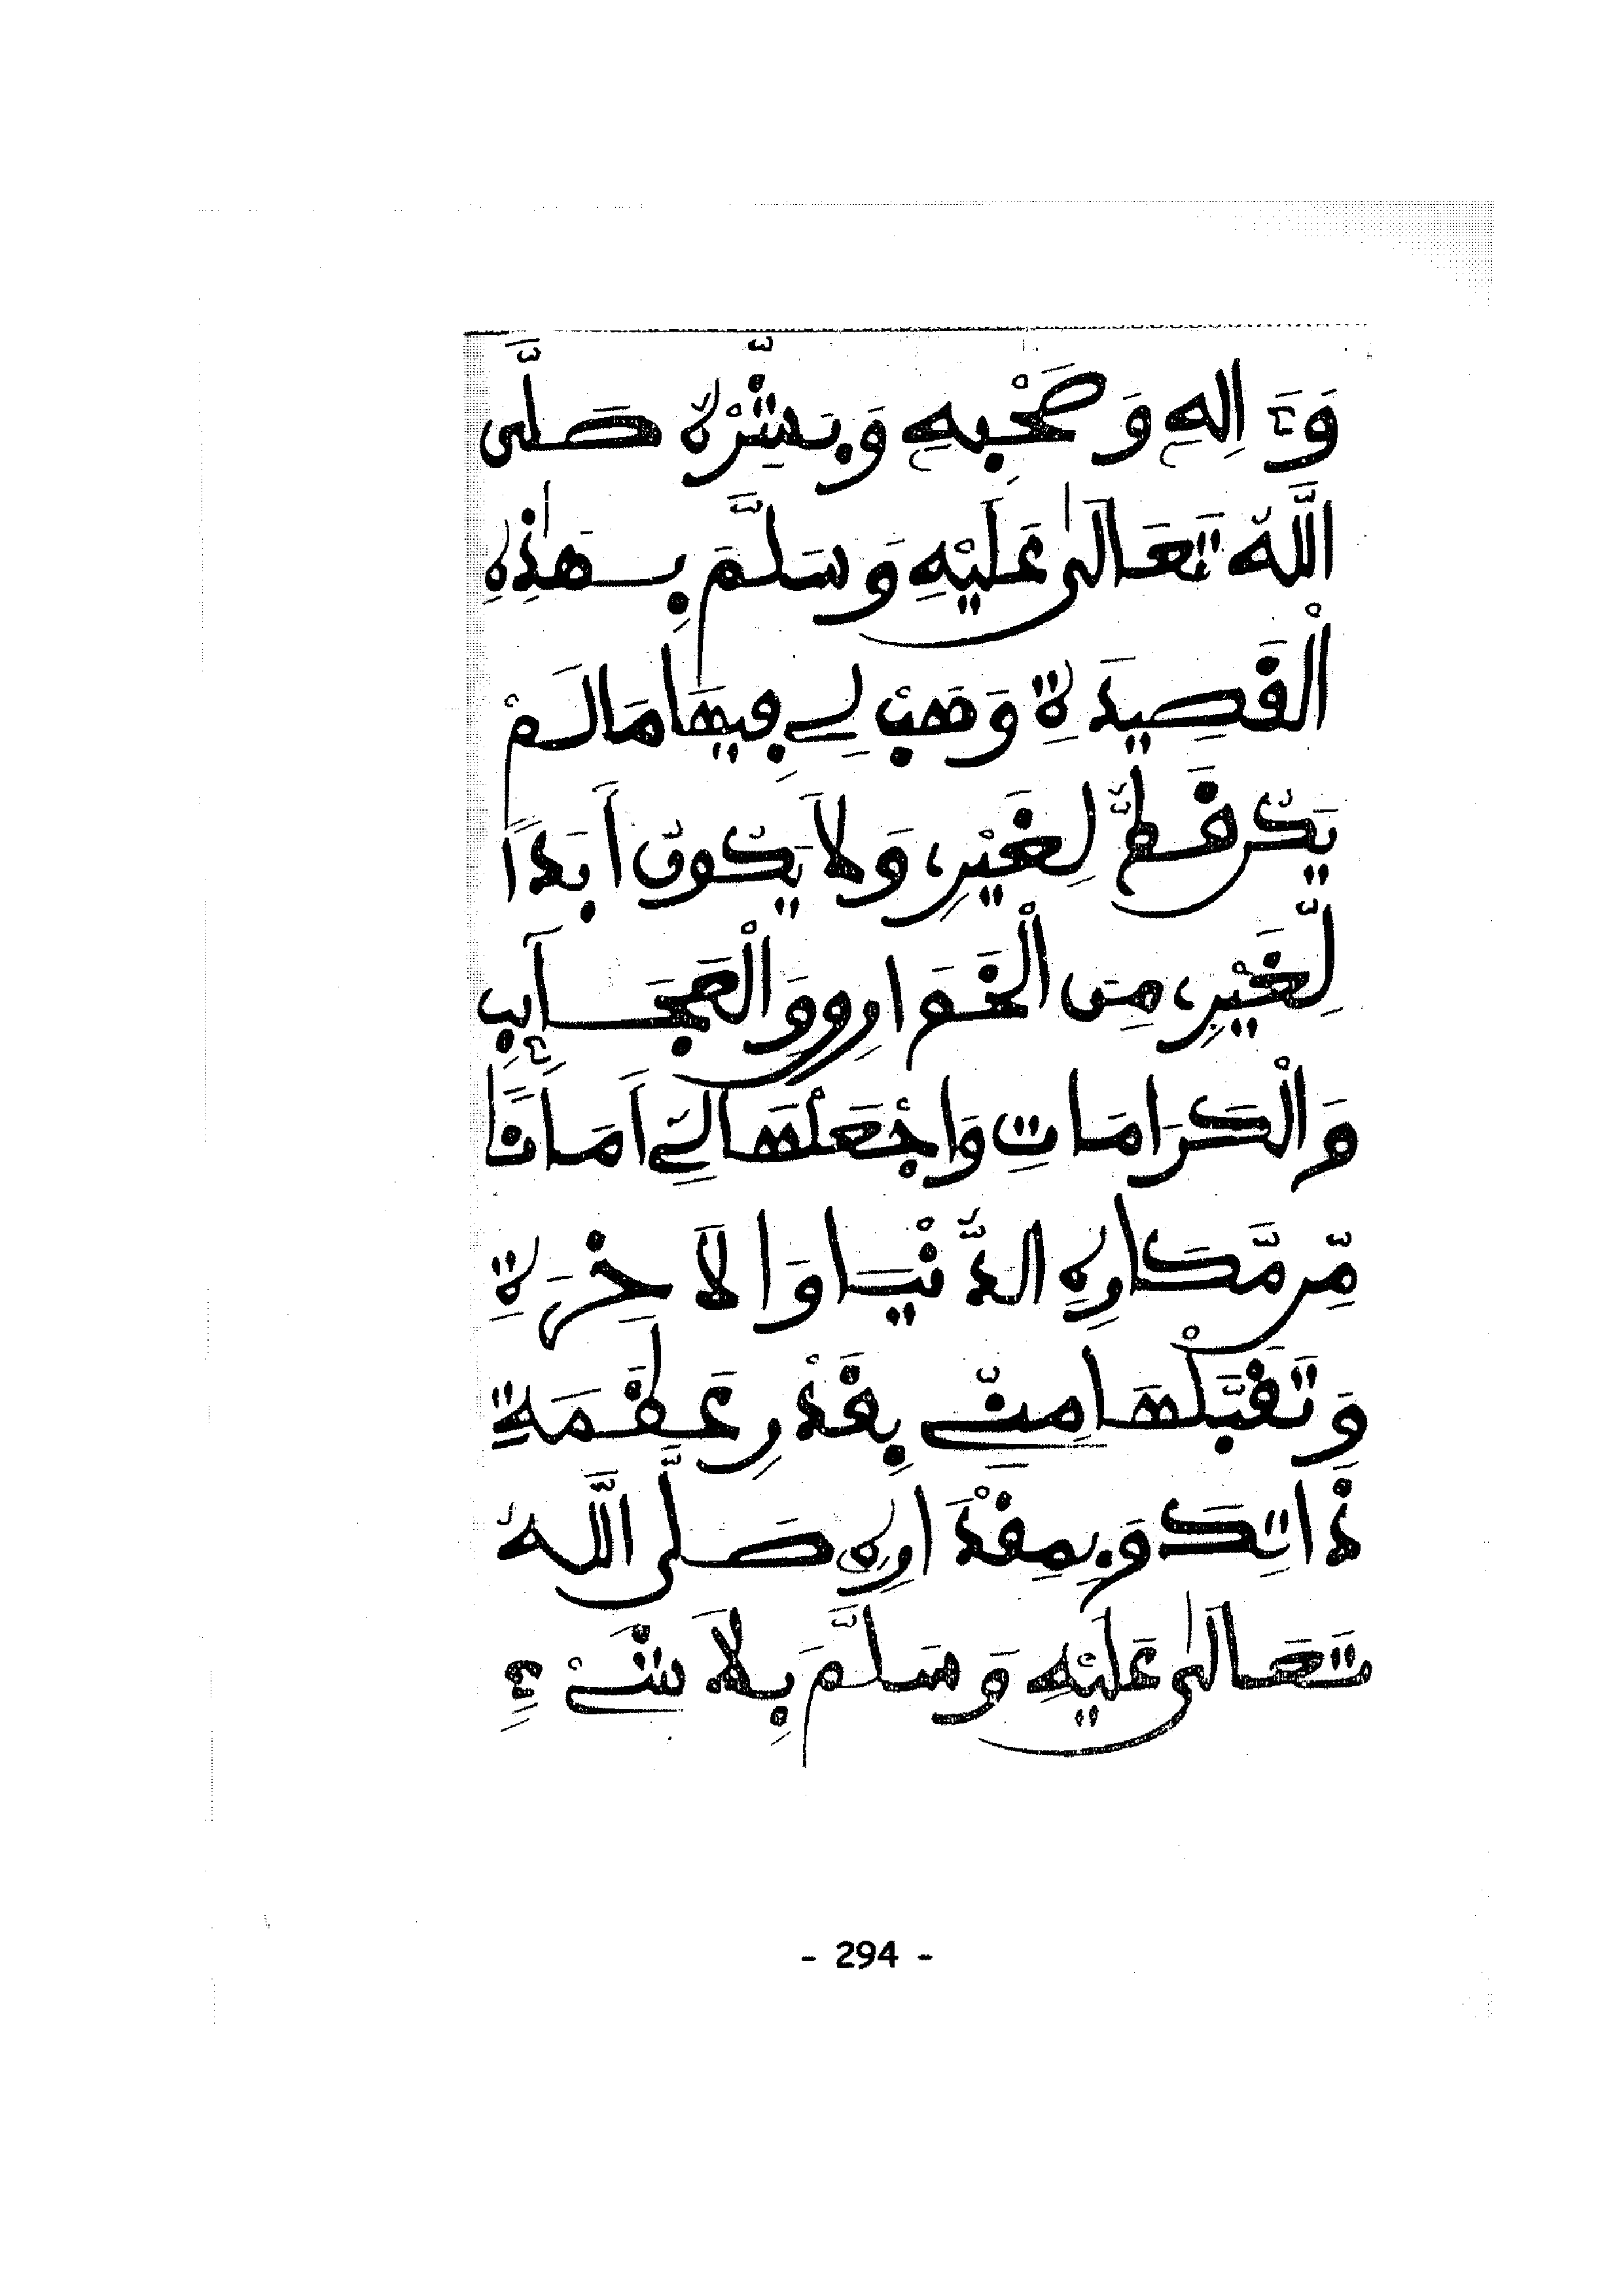 وَءَالِهِ وَصَحْبِهِ وَبَشِّرْهُ صَلَّى
اللَّهُ تَعَالَىٰ عَلَيْهِ وَسَلَّمَ بِهَٰذِهِ
الْقَصِيدَةِ وَهَبْ لِي فِيهَا مَا لَمْ
يَكُن قَطُّ لِغَيْرِي وَلَا يَكُونُ أَبَدًا
لِّغَيْرِي مِنَ الْخَوَارِقِ وَالْعَجَآئِبِ
وَالْكَرَامَاتِ وَاجْعَلْهَا لِيَ أَمَانًا
مِّن مَّكَارِهِ الدُّنْيَا وَالْأَخِرَةِ
وَتَقَبَّلْهَا مِنِّي بِقَدْرِ عَظَمَةِ
ذَاتِكَ وَبِمِقْدَارِهِ صَلَّى اللَّهُ
تَعَالَىٰ عَلَيْهِ وَسَلَّمَ بِلَا شَيْءٍ
- 294 -